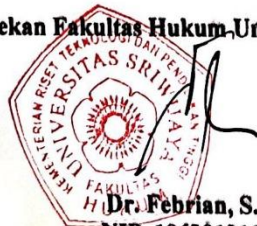 ekan Fakultas Hukum Un
KEMENTERIAN RISET TEKNOLOGI DAN PENDIDIKAN TINGGI
UNIVERSITAS SRIWIJAYA
FAKULTAS
HUKUM
Dr. Febrian, S.